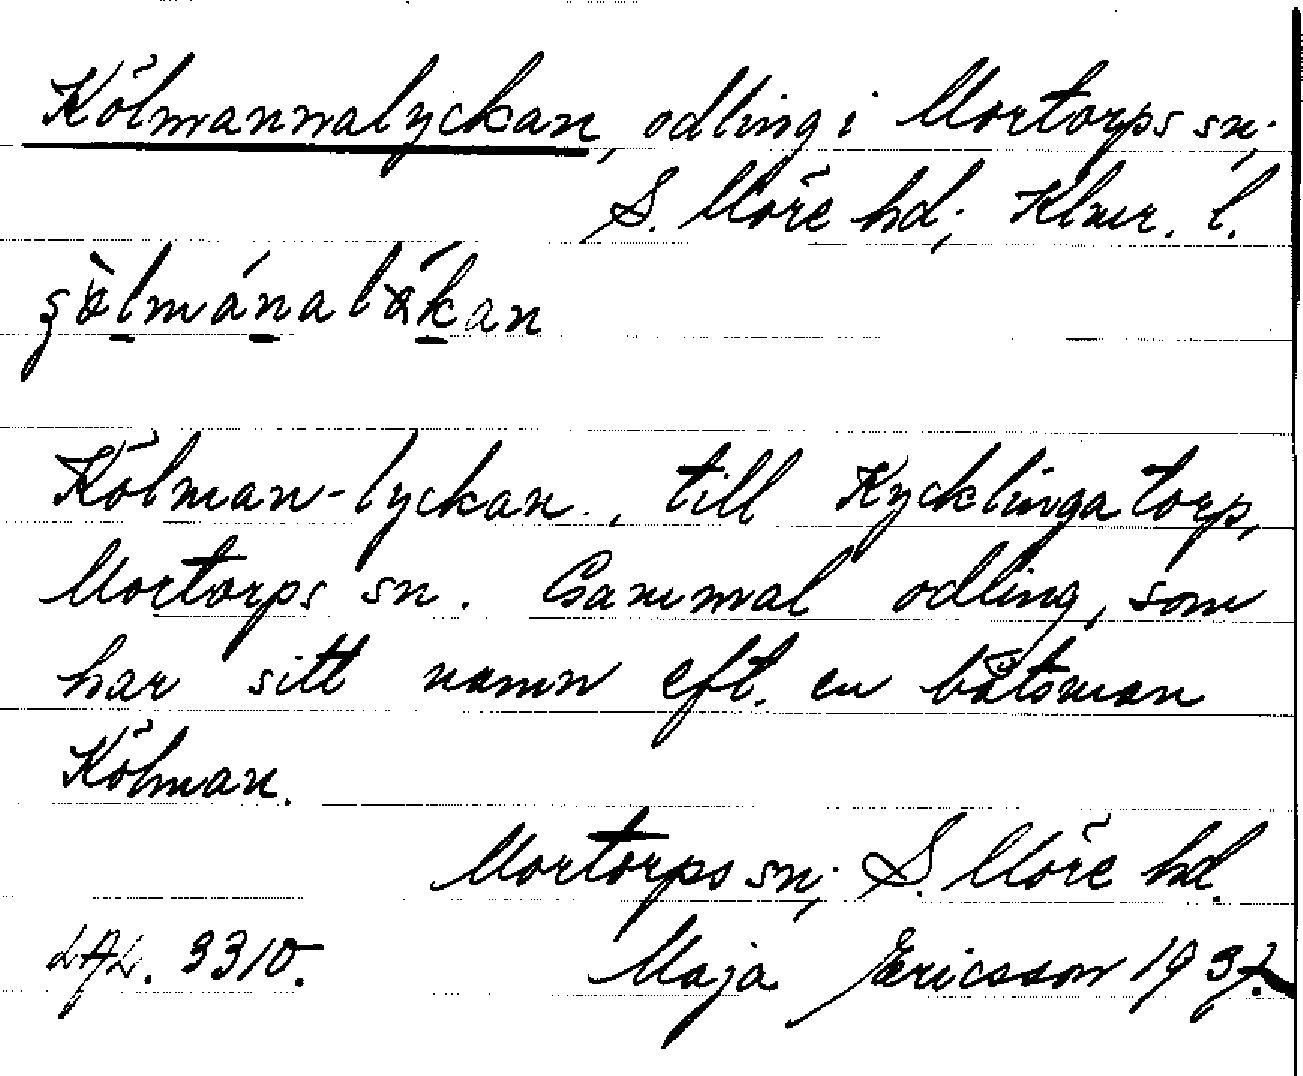 Kölmannalyckan, odling i Mortorps sn;
S. Möre hd; Klmr. l.
Kölman-lyckan., till Kycklingatorp,
Mortorps sn. Gammal odling, som
har sitt namn eft. en båtsman
Kölman.
Mortorps sn; S. Möre hd.
LAL. 3310. Maja Ericsson 1937.